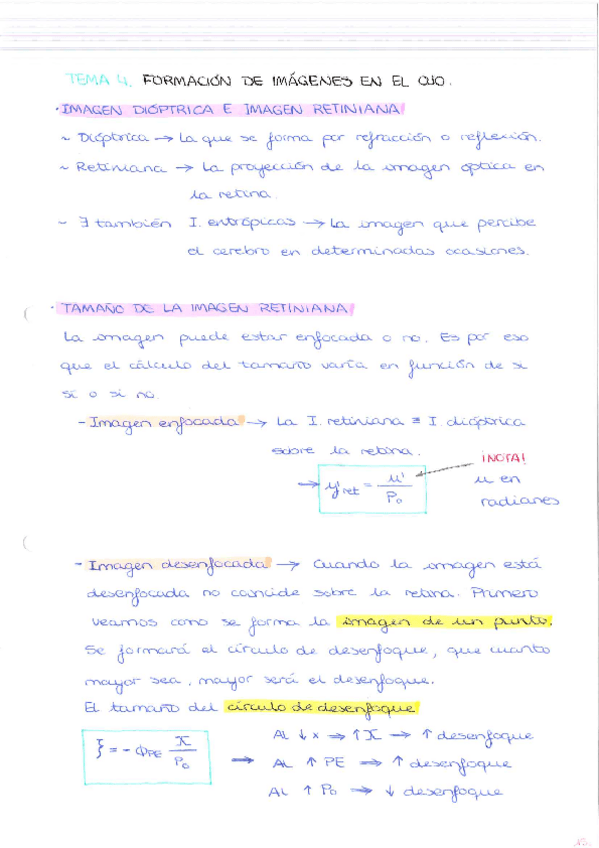 TEMA 4. FORMACIÓN DE IMÁGENES EN EL OJO.
· IMAGEN DIÓPTRICA E IMAGEN RETINIANA
~ Dióptrica → La que se forma por refracción o reflexión.
~ Retiniana → La proyección de la imagen óptica en
la retina.
~ ∃ también I. entrópicas → La imagen que percibe
el cerebro en determinadas ocasiones.
· TAMAÑO DE LA IMAGEN RETINIANA
La imagen puede estar enfocada o no. Es por eso
que el cálculo del tamaño varía en función de si
sí o si no.
- Imagen enfocada → La I. retiniana ≡ I. dióptrica
sobre la retina.
¡NOTA!
→ y'ret = u' / P₀
u en
radianes
- Imagen desenfocada → Cuando la imagen está
desenfocada no coincide sobre la retina. Primero
veamos como se forma la imagen de un punto.
Se formará el círculo de desenfoque, que cuanto
mayor sea, mayor será el desenfoque.
El tamaño del círculo de desenfoque
ξ = - ΦPE X / P₀
AL ↓ x → ↑ X → ↑ desenfoque
→ AL ↑ PE → ↑ desenfoque
AL ↑ P₀ → ↓ desenfoque